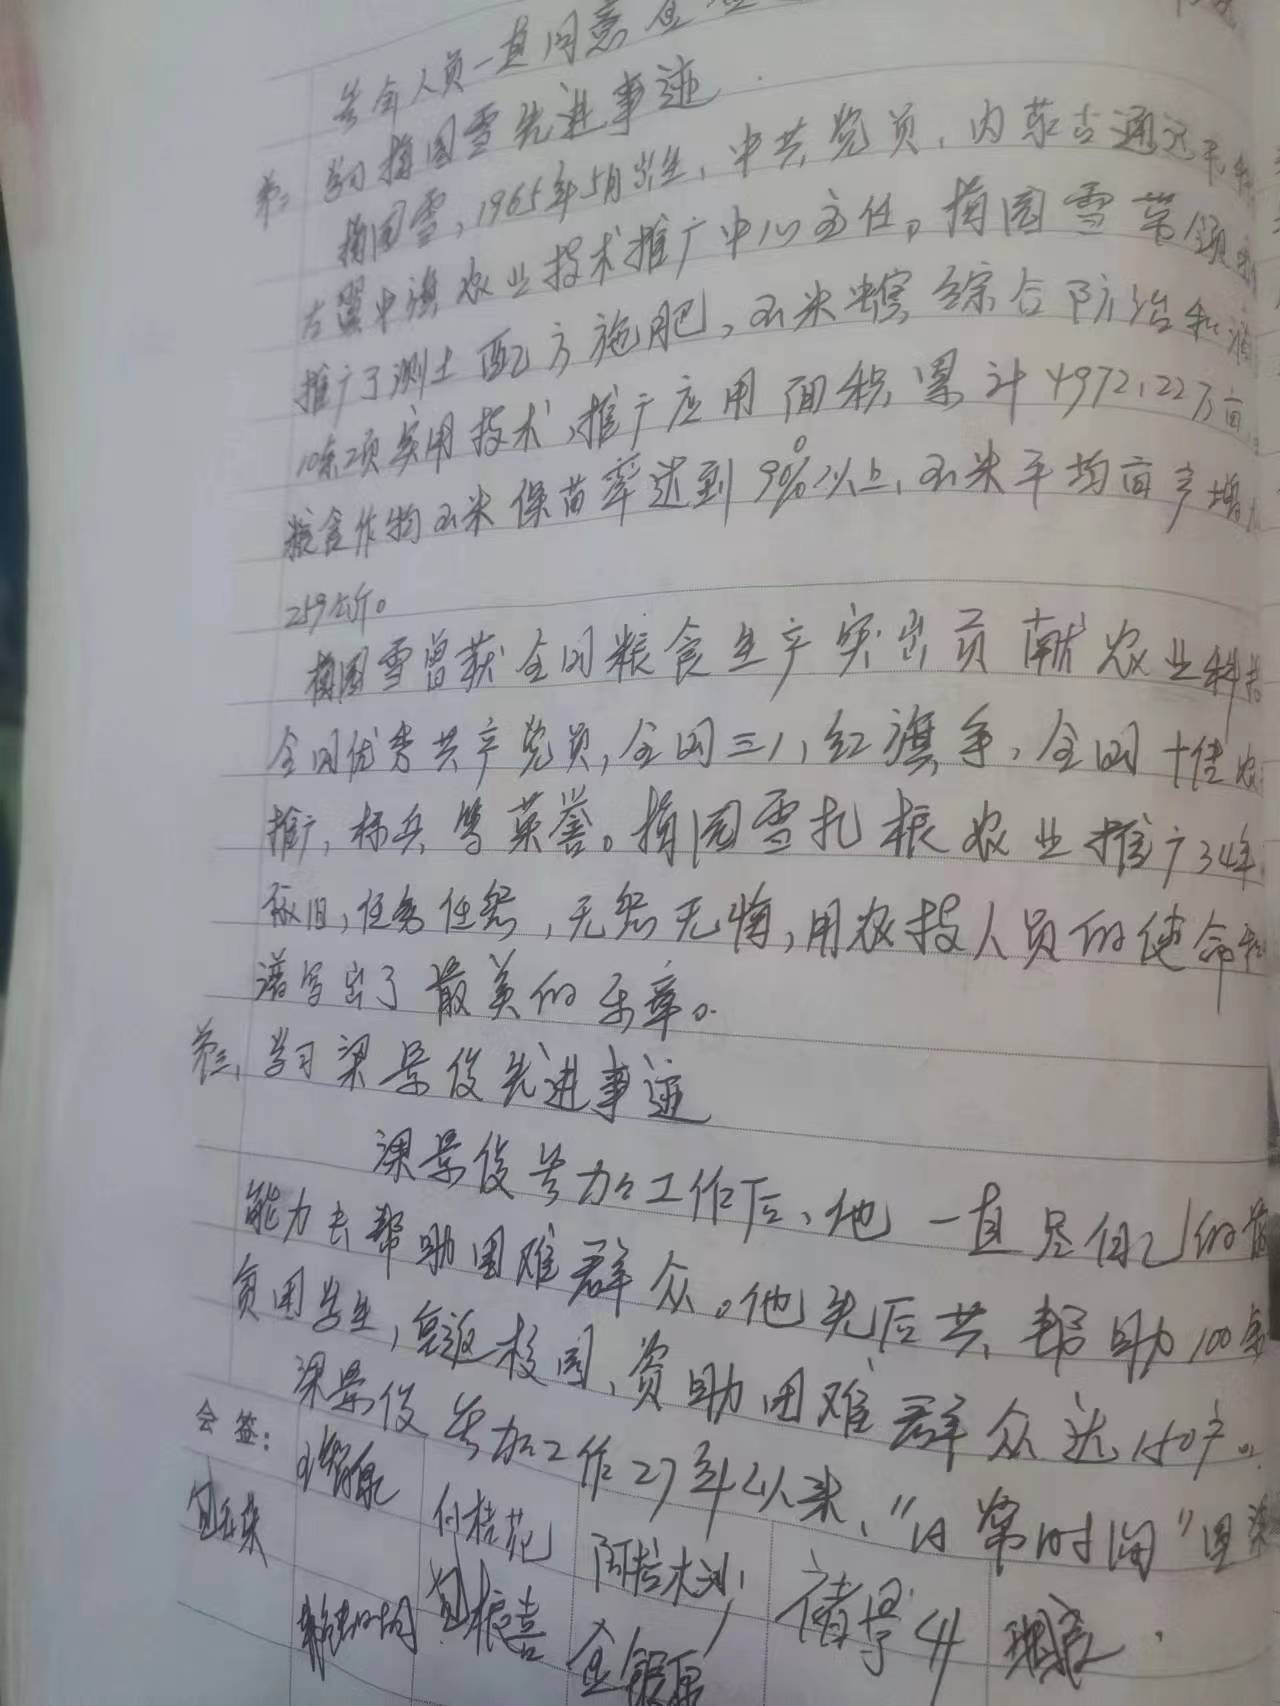 参会人员一直同意
第二 学习梅园雪先进事迹.
梅园雪,1965年5月出生,中共党员,内蒙古通辽市科
左翼中旗农业技术推广中心主任。梅园雪带领
推广了测土配方施肥,玉米螟综合防治和
10余项实用技术,推广应用面积累计4972.22万亩,
粮食作物玉米保苗率达到90%以上,玉米平均亩产增
259公斤。
梅园雪曾获全国粮食生产突出贡献农业科
全国优秀共产党员,全国三八红旗手,全国十佳农
推广,标兵等荣誉。梅园雪扎根农业推广34年
依旧,任劳任怨,无怨无悔,用农技人员的使命和
谱写出了最美的乐章。
第三、学习梁景俊先进事迹
梁景俊参加工作后,他一直尽自己的
能力去帮助困难群众。他先后共帮助100多
贫困学生,复返校园,资助困难群众达150户。
梁景俊参加工作27年以来,“日常时间”里
会签:
付桂花
阿拉木
包根喜
金银原